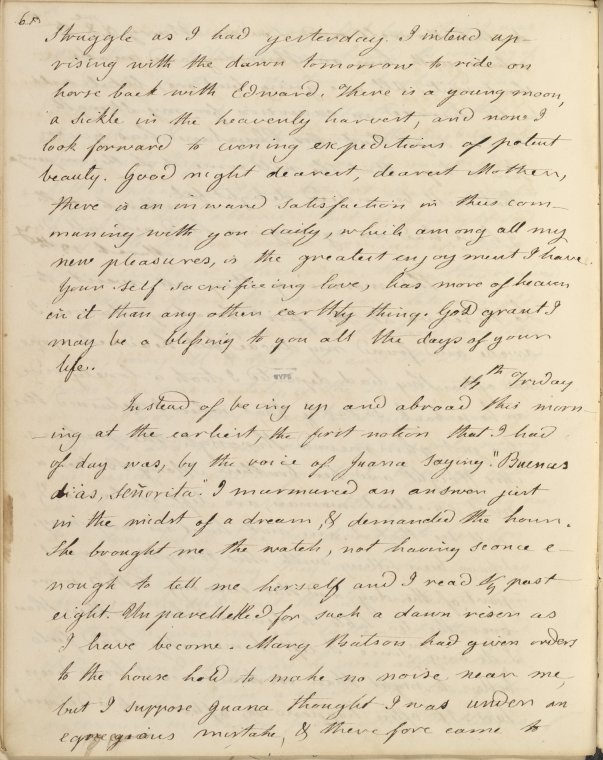 65.
struggle as I had yesterday. I intend up-
rising with the dawn tomorrow to ride on
horse back with Edward. There is a young moon,
a sickle in the heavenly harvest, and now I
look forward to evening expeditions of potent
beauty. Good night dearest, dearest Mother,
there is an inward satisfaction in thus com-
muning with you daily, which among all my
new pleasures, is the greatest enjoyment I have.
Your self sacrificeing love, has more of heaven
in it than any other earthly thing. God grant I
may be a blessing to you all the days of your
life.
14th Friday
Instead of being up and abroad this morn-
-ing at the earliest, the first notion that I had
of day was, by the voice of Juana saying "Buenas
dias, señorita". I murmured an answer just
in the midst of a dream, & demanded the hour.
She brought me the watch, not having sconce e-
nough to tell me herself and I read ½ past
eight. Unparellelled for such a dawn riser as
I have become. Mary Batson had given orders
to the house hold to make no noise near me,
but I suppose Juana thought I was under an
egregious mistake, & therefore came to